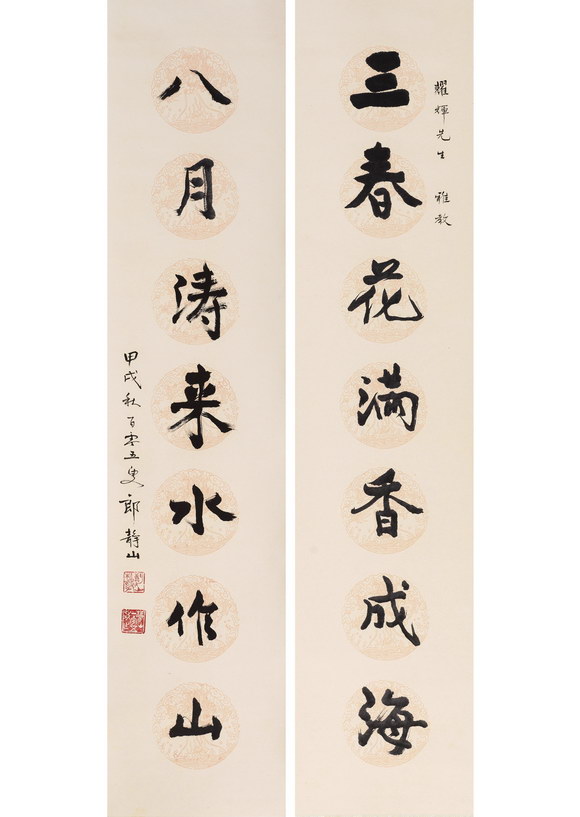 耀煇先生　雅教
三春花满香成海
八月涛来水作山
甲戌秋百零五叟郎静山